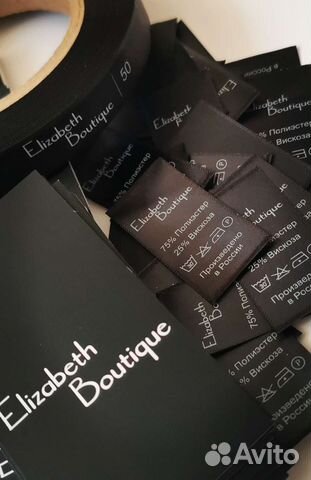 Elizabeth
Boutique
50
Elizabeth
Boutique
в России
75% Полиэстер
25% Вискоза
Elizabeth
Boutique
75% Полиэстер
25% Вискоза
Произведено
в России
Elizabeth
Boutique
25% Вискоза
Elizabeth
Boutique
Elizabeth
Boutique
Произведено
в России
E
Avito